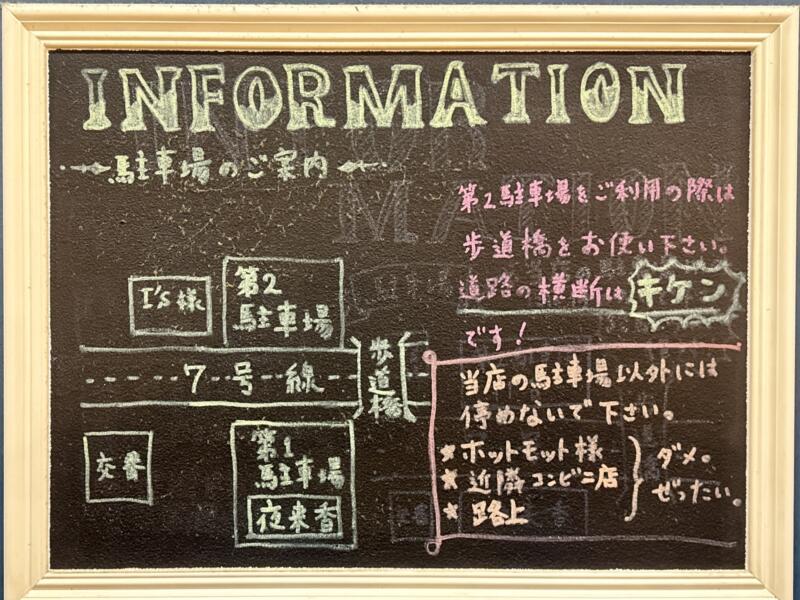 INFORMATION
駐車場のご案内
第2駐車場をご利用の際は
歩道橋をお使い下さい。
道路の横断はキケン
です!
I's様
第2
駐車場
7号線
歩道橋
交番
第1
駐車場
夜来香
当店の駐車場以外には
停めないで下さい。
★ホットモット様
★近隣コンビニ店
★路上
ダメ。
ぜったい。